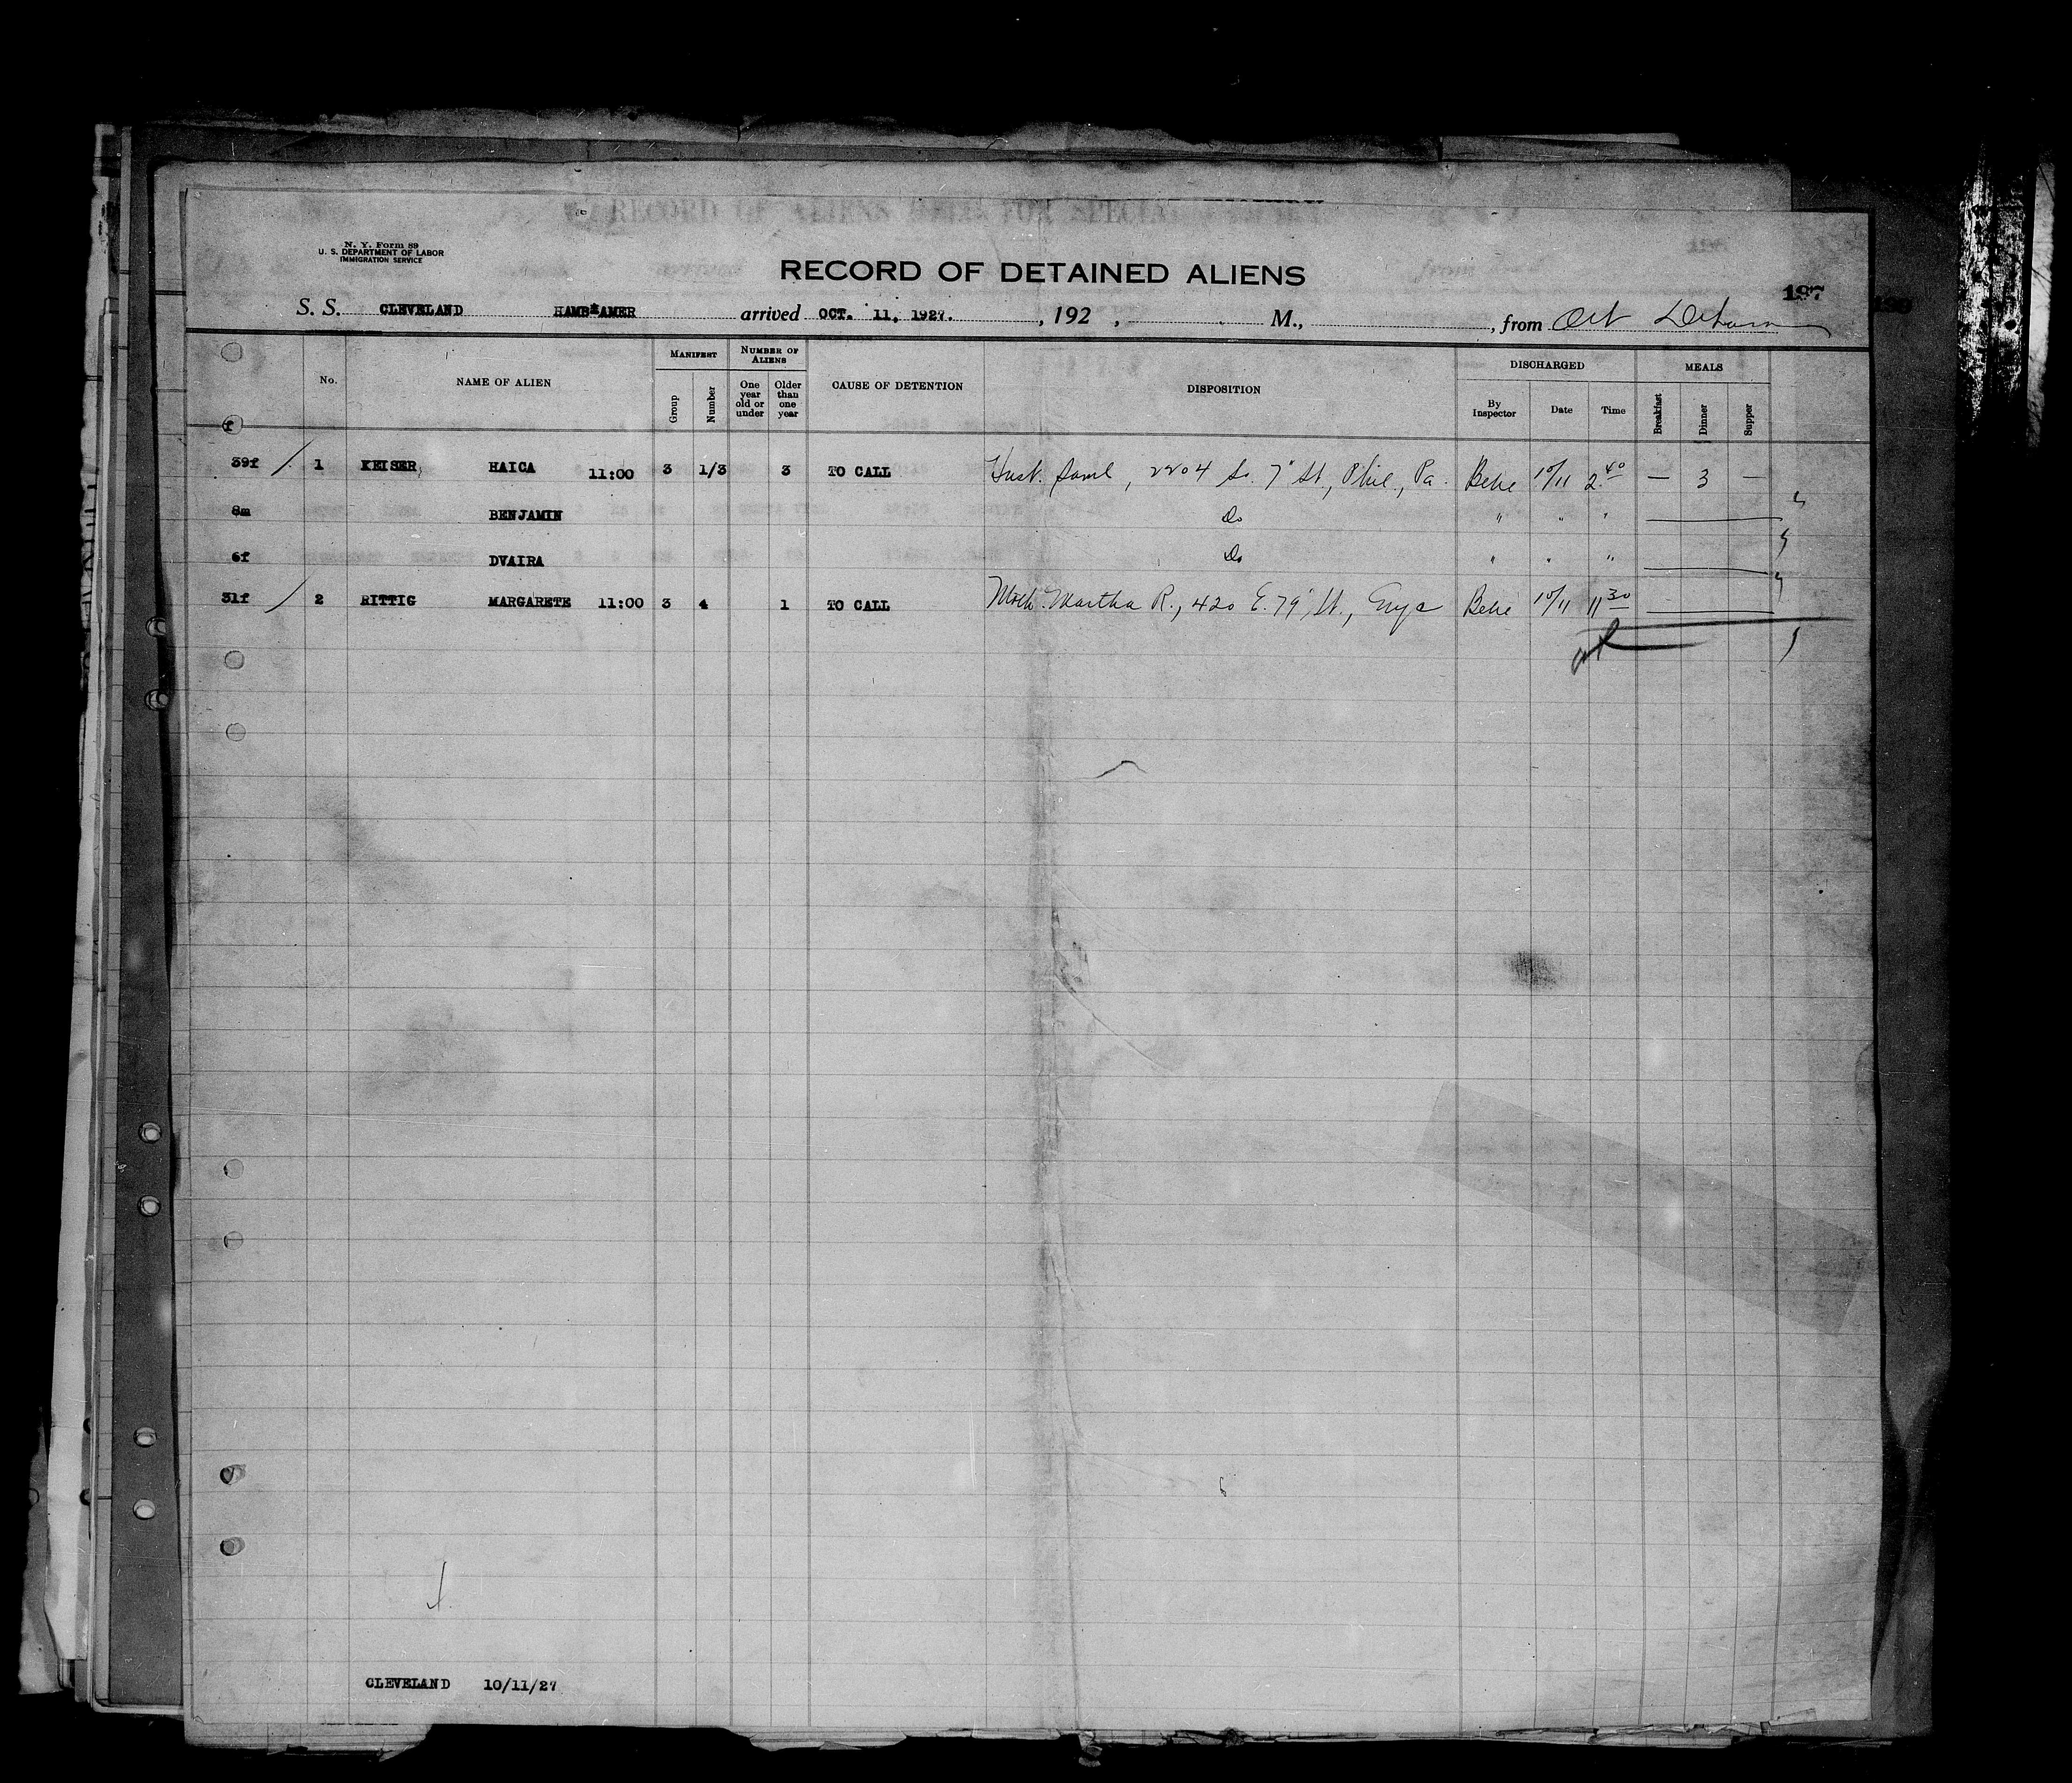 RECORD OF ALIENS HELD FOR SPECIAL
N. Y. Form 89
U. S. DEPARTMENT OF LABOR
IMMIGRATION SERVICE
RECORD OF DETAINED ALIENS
197
S. S. CLEVELAND HAMB*AMER arrived OCT. 11, 1927. , 192 , M., , from
No. NAME OF ALIEN MANIFEST Group Number NUMBER OF ALIENS One year old or under Older than one year CAUSE OF DETENTION DISPOSITION DISCHARGED By Inspector Date Time MEALS Breakfast Dinner Supper
f
39f / 1 KEISER, HAICA 11:00 3 1/3 3 TO CALL Husb. Saml, 2204 So. 7" St., Phil., Pa. Behe 10/11 2.40 — 3 —
8m BENJAMIN Do " " "
6f DVAIRA Do " " "
31f / 2 RITTIG MARGARETE 11:00 3 4 1 TO CALL Moth. Martha R., 420 E. 79" St., Behe 10/11 11 30
CLEVELAND 10/11/27